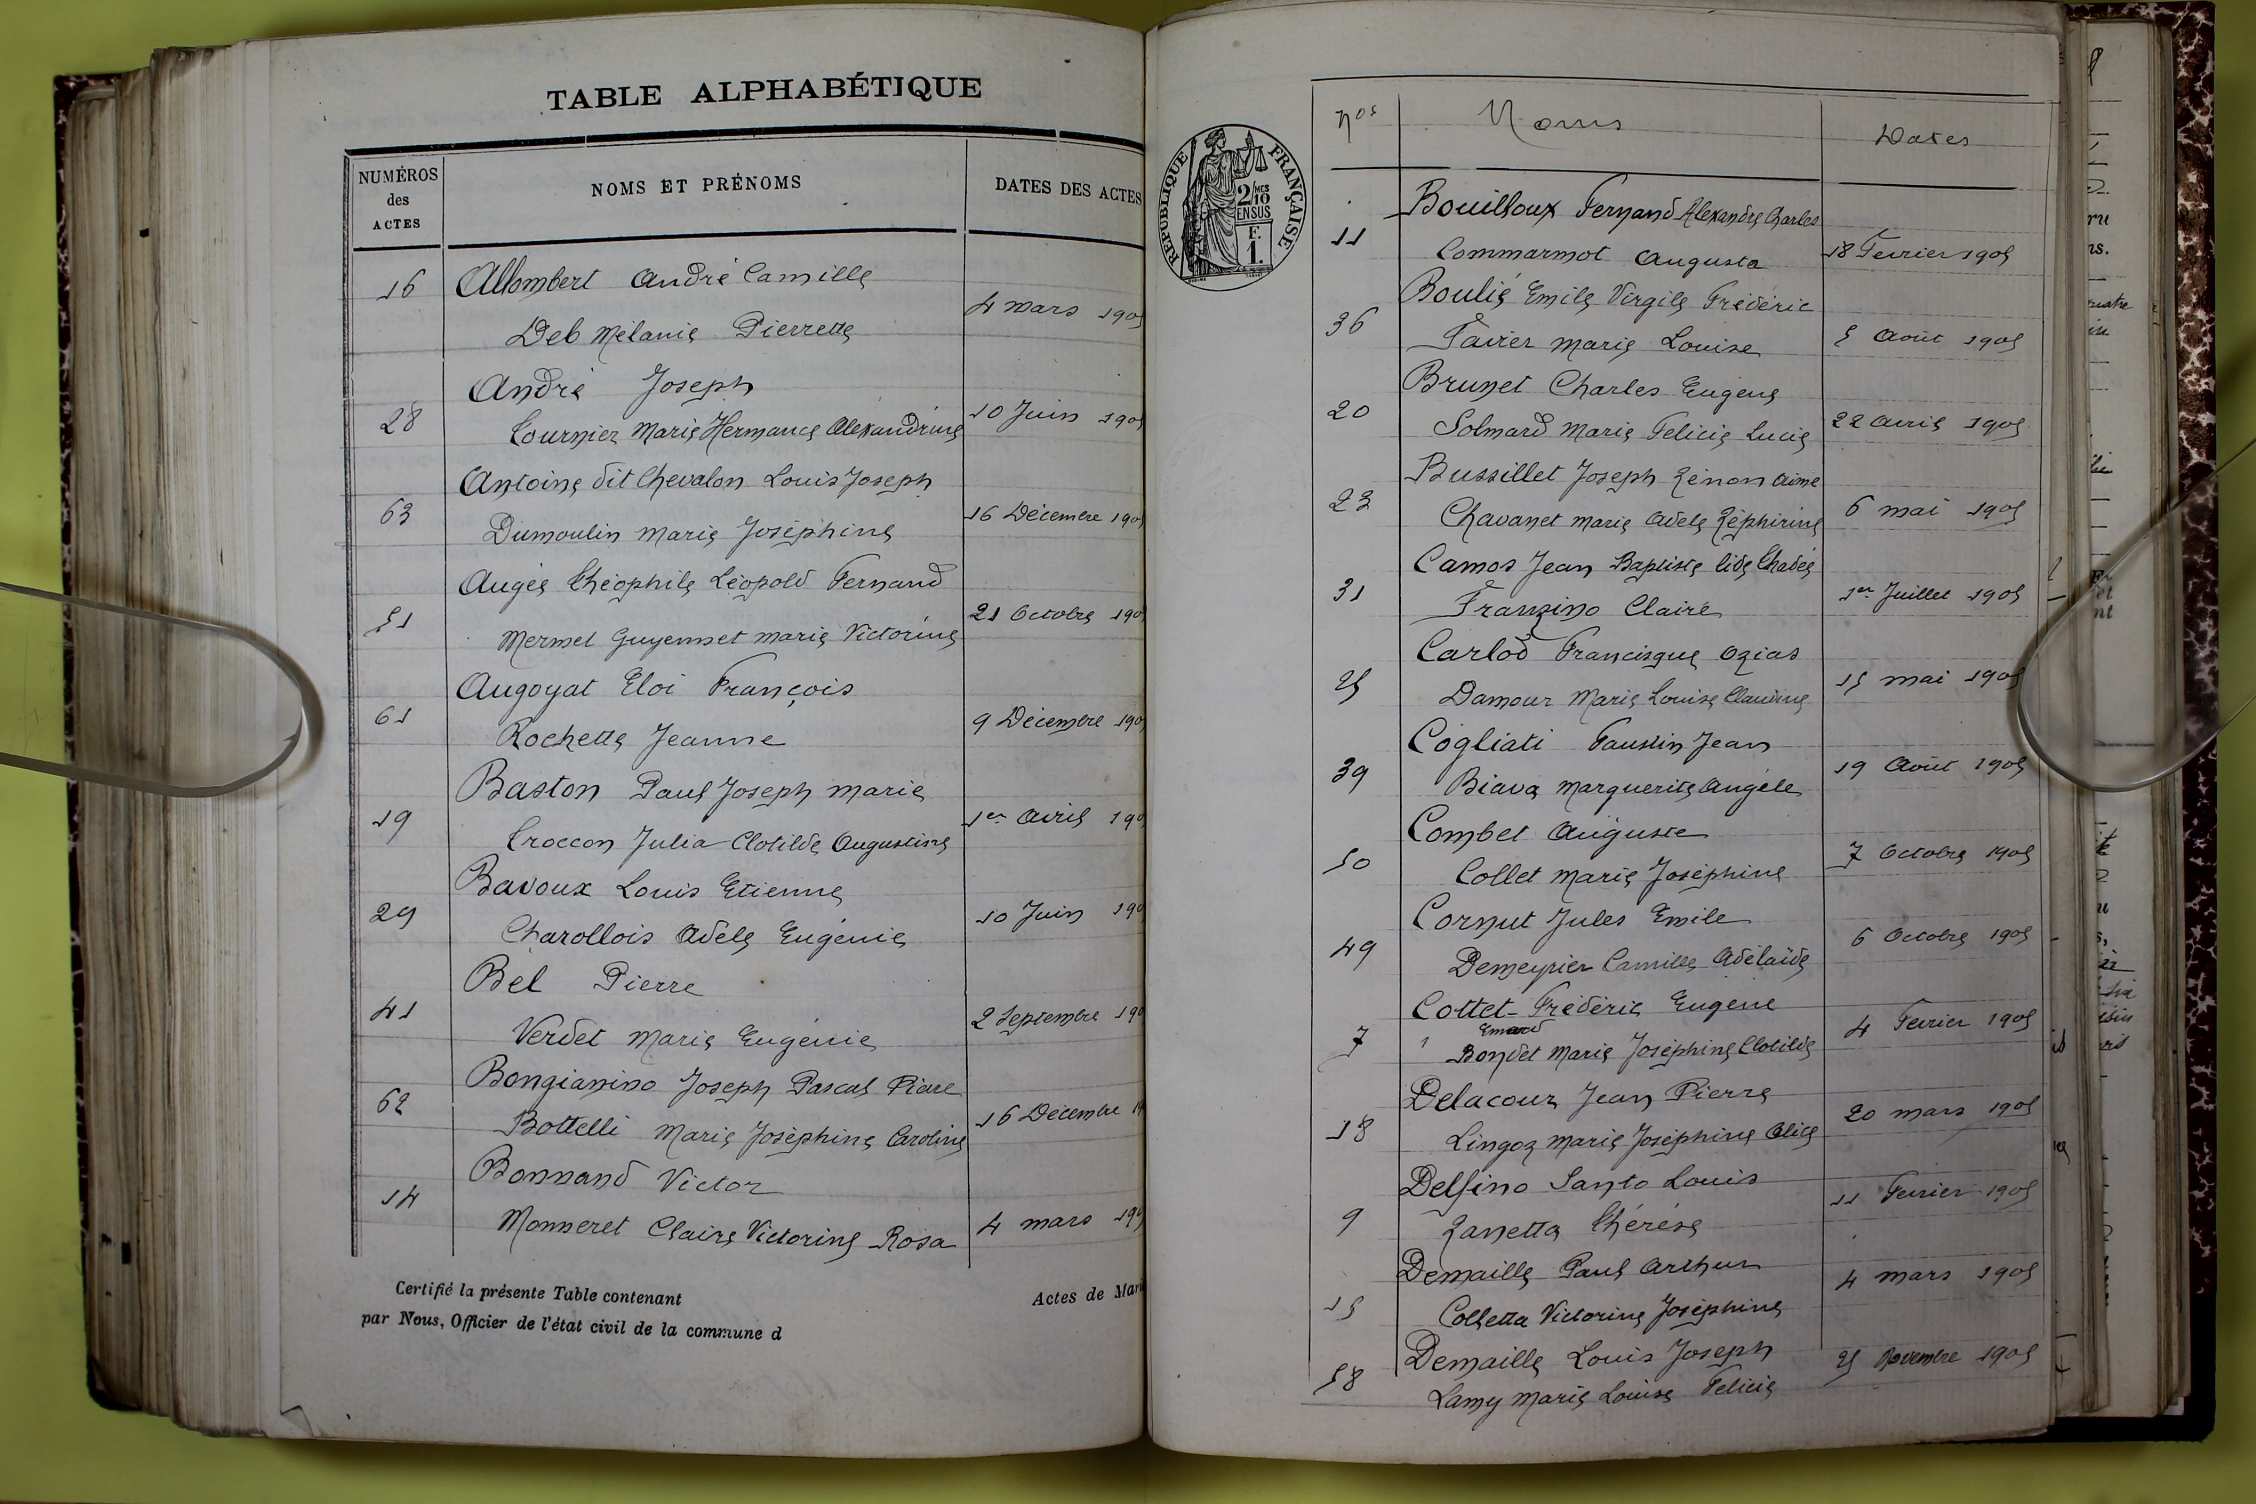 TABLE ALPHABÉTIQUE
NUMÉROS des ACTES
NOMS ET PRÉNOMS
DATES DES ACTES
16 Allombert André Camille
Deb Mélanie Pierrette 4 mars 190
André Joseph
28 Tournier Marie Hermance Alexandrine 10 Juin 190
Antoine dit Chevalon Louis Joseph
63 Dumoulin Marie Joséphine 16 Décembre 190
Augée Théophile Léopold Fernand
51 Mermet Guyennet Marie Victorine 21 Octobre 190
Augoyat Eloi François
61 Rochette Jeanne 9 Décembre 190
Baston Paul Joseph Marie
19 Croccon Julia Clotilde Augustine 1er Avril 190
Bavoux Louis Etienne
29 Charollois Adèle Eugénie 10 Juin 190
Bel Pierre
41 Verdet Marie Eugénie 2 Septembre 190
Bongianino Joseph Pascal Piare
62 Bottelli Marie Joséphine Caroline 16 Décembre 19
Bonnand Victor
14 Monneret Claire Victorine Rosa 4 mars 190
Certifié la présente Table contenant Actes de Mari
par Nous, Officier de l'état civil de la commune d
RÉPUBLIQUE FRANÇAISE
2/10 MES
EN SUS
F.
1.
Nos Noms Dates
Bouilloux Fernand Alexandre Charles
11 Commarmot Augusta 18 Fevrier 1905
Boulié Emile Virgile Frédéric
36 Favier Marie Louise 5 Août 1905
Brunet Charles Eugène
20 Solmard Marie Felicie Lucie 22 Avril 1905
Bussillet Joseph Zénon Aimé
23 Chavanet Marie Adèle Zéphirine 6 mai 1905
Camos Jean Baptiste Tadée
31 Franzino Claire 1er Juillet 1905
Carlod Francisque Ozias
25 Damour Marie Louise Claudine 15 mai 1905
Cogliati Faustin Jean
39 Biava Marguerite Angèle 19 Août 1905
Combet Auguste
50 Collet Marie Joséphine 7 Octobre 1905
Cornut Jules Emile
49 Demeyrier Camille Adélaïde 6 Octobre 1905
Cottet-Emard Frédéric Eugène
7 Bondet Marie Joséphine Clotilde 4 Fevrier 1905
Delacour Jean Pierre
18 Lingoz Marie Joséphine Alice 20 mars 1905
Delfino Santo Louis
9 Zanetta Thérèse 11 Fevrier 1905
Demaille Paul Arthur
15 Colletta Victorine Joséphine 4 mars 1905
Demaille Louis Joseph
58 Lamy Marie Louise Felicie 25 Novembre 1905